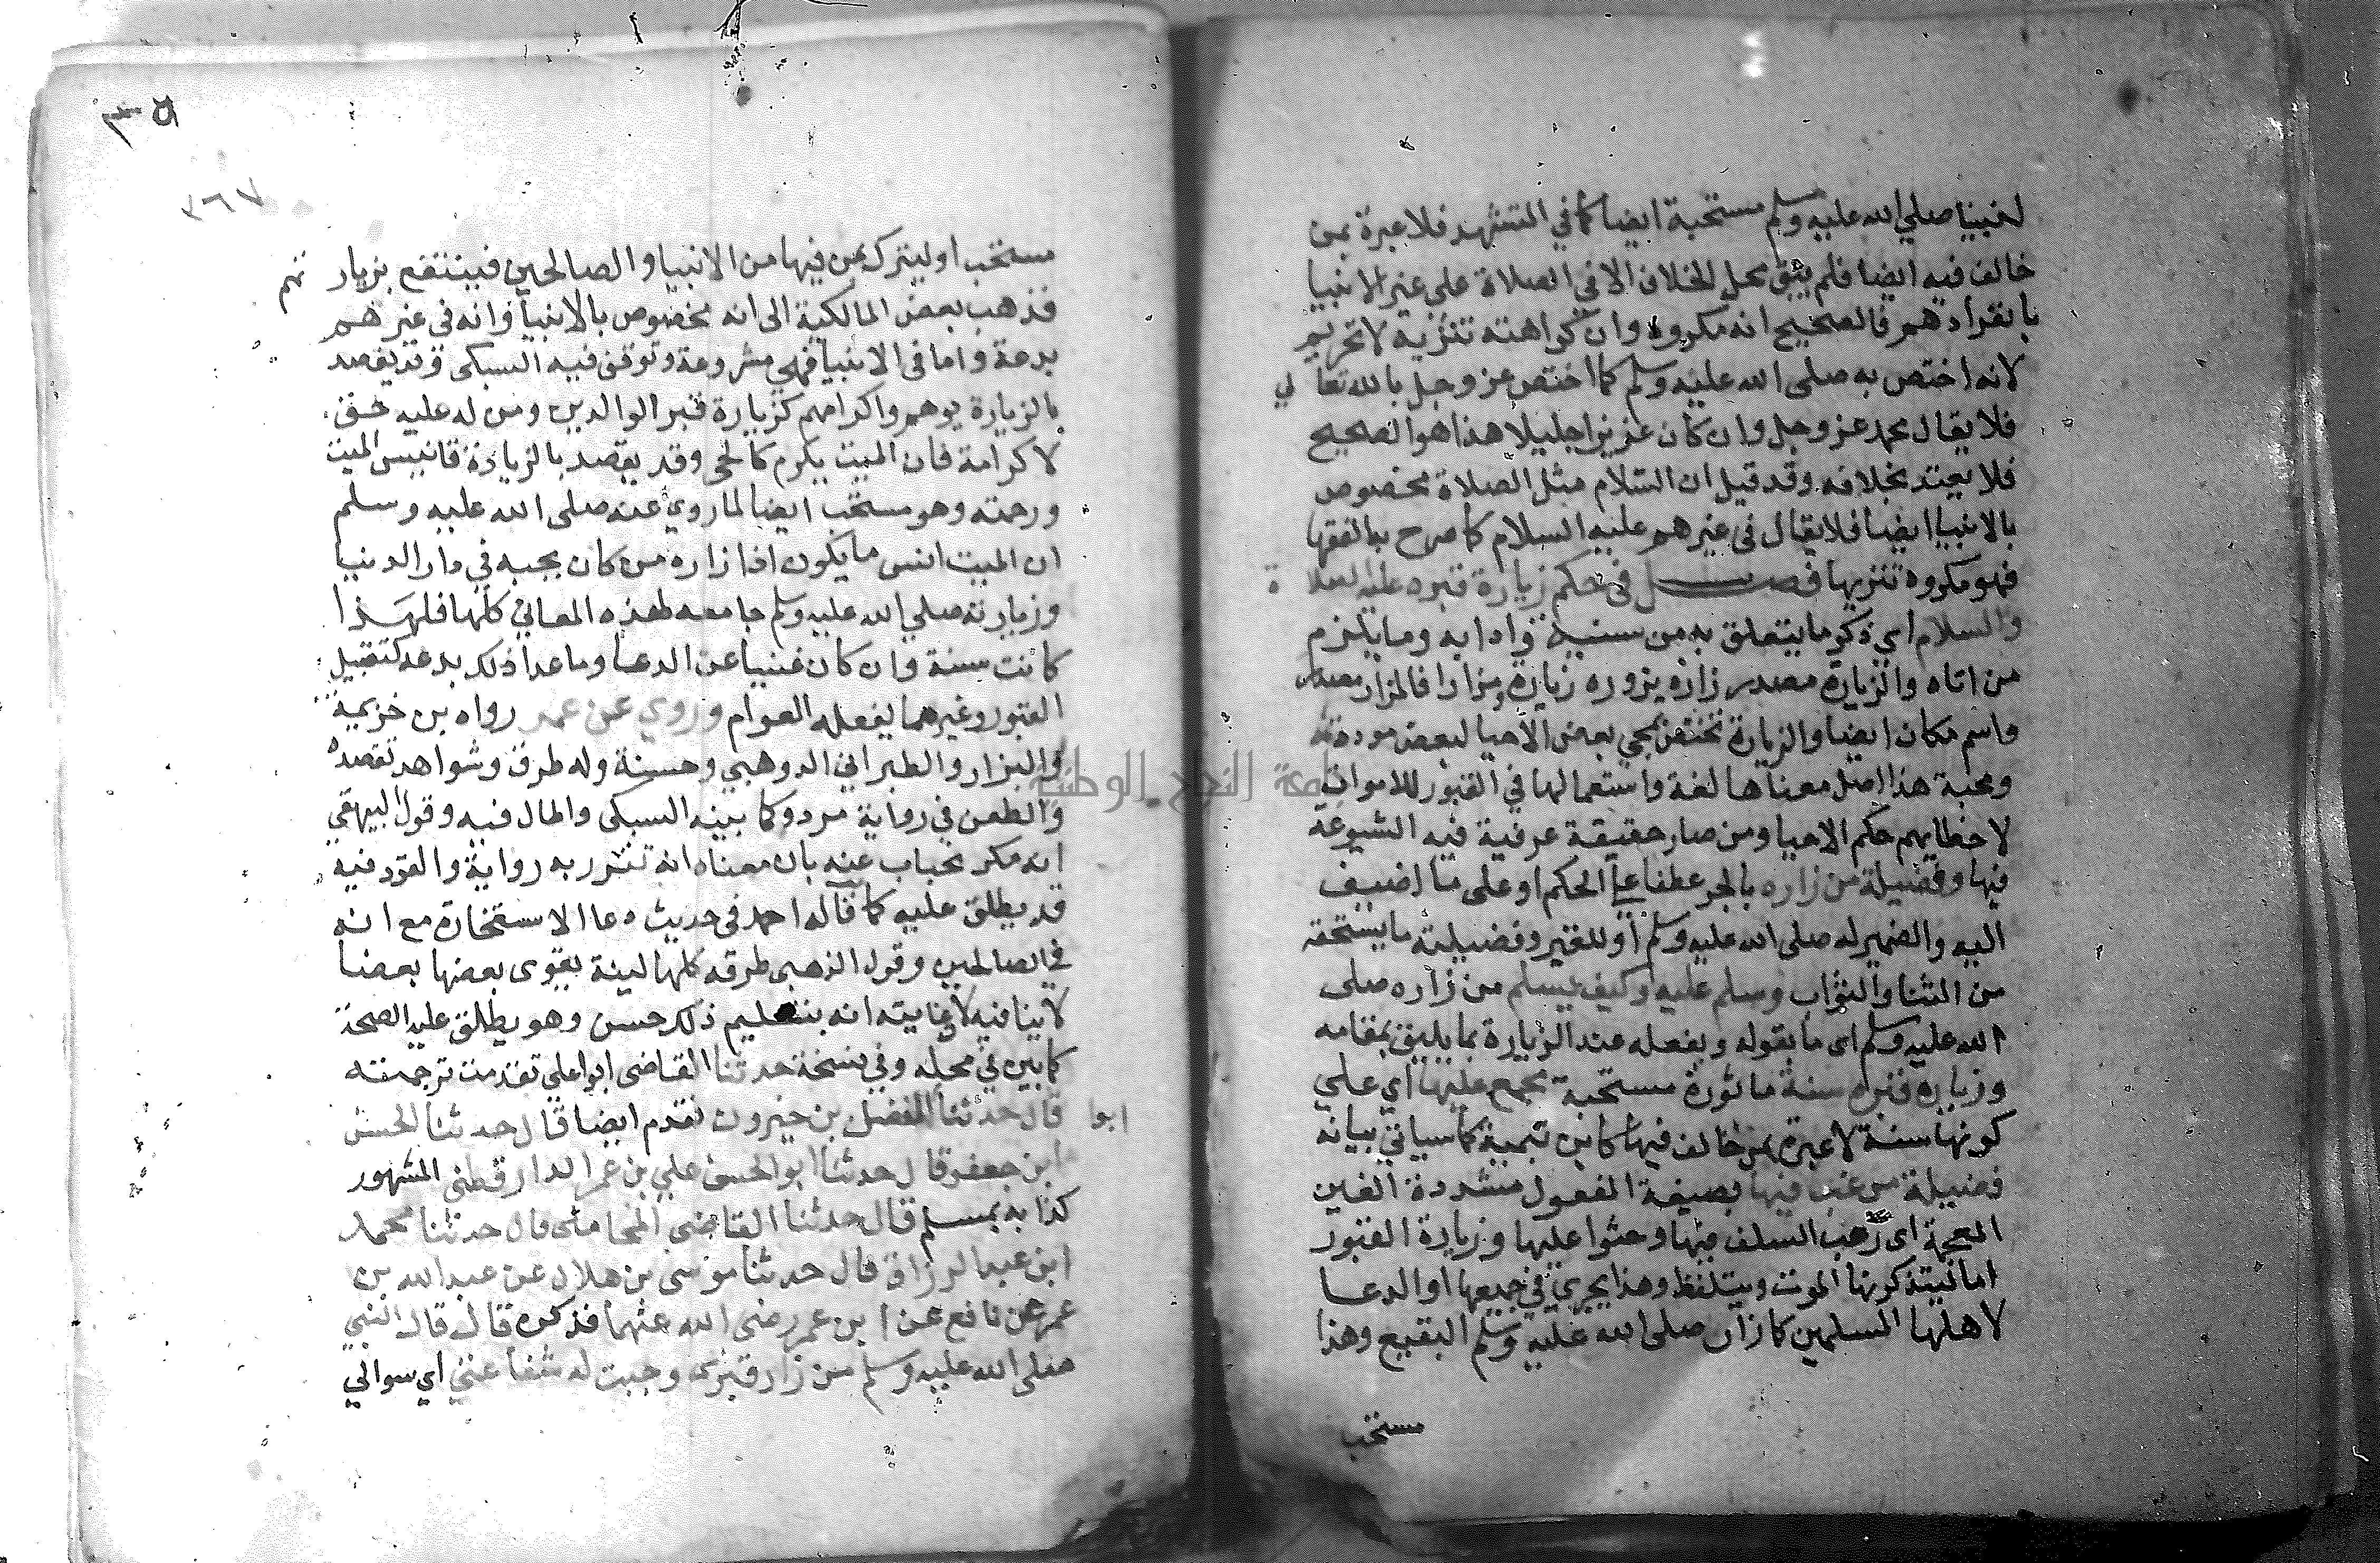 لنبينا صلي الله عليه وسلم مستحبة ايضا كما في التشهد فلا عبرة بمن
خالف فيه ايضا فلم يبق محل للخلاف الا في الصلاة علي غير الانبيا
بانفرادهم فالصحيح انه مكروه وان كراهته تنزيه لا تحريم
لانه اختص به صلى الله عليه وسلم كما اختص عز وجل بالله تعالي
فلا يقال محمد عز وجل وان كان عزيزا جليلا هذا هو الصحيح
فلا يعتد بخلافه وقد قيل ان السلام مثل الصلاة مخصوص
بالانبيا ايضا فلا يقال في غيرهم عليه السلام كما صرح به الفقها
فهو مكروه تنزيها فصل في حكم زيارة قبره عليه الصلاة
والسلام اي ذكر ما يتعلق به من سنية وادابه وما يلزم
من اتاه والزيارة مصدر زاره يزوره زيارة ومزارا فالمزار مصدر
واسم مكان ايضا والزيارة تختص بمجي بعض الاحيا لبعض مودة
ومحبة هذا اصل معناها لغة واستعمالها في القبور للاموات
لاعطايهم حكم الاحيا ومن صار حقيقة عرفية فيه الشيوعه
فيها وفضيلة من زاره بالجر عطفا علي الحكم او على ما اضيف
اليه والضمير له صلى الله عليه وسلم او للقبر وفضيلته ما يستحقه
من الثنا والثواب وسلم عليه وكيف يسلم من زاره صلى
الله عليه وسلم اى ما يقوله ويفعله عند الزيارة بما يليق بمقامه
وزياره قبره سنة ماثورة مستحبة مجمع عليها اي علي
كونها سنة لا عبرة بمن خالف فيها كابن تيمية كما سياتي بيانه
فضيلة مرغب فيها بصيغة المفعول مشددة الغين
المعجمة اى رغب السلف فيها وحثوا عليها وزيارة القبور
اما ليتذكر بها الموت ويتلفظ وهذا يجري في جميعها او الدعا
لاهلها المسلمين كما زار صلى الله عليه وسلم البقيع وهذا
مستحب
٣٥
٣٦٧
مستحب او ليترك بمن فيها من الانبيا والصالحين فينتفع بزيارتهم
فذهب بعض المالكية الى انه مخصوص بالانبيا وانه في غيرهم
بدعة واما في الانبيا فهي مشروعة وتوقف فيه السبكى وقد يقصد
بالزيارة برهم واكرامهم كزيارة قبر الوالدين ومن له عليه حق
لاكرامة فان الميت يكرم كالحي وقد يقصد بالزيارة تانيس الميت
ورحمته وهو مستحب ايضا لما روي عنه صلى الله عليه وسلم
ان الميت انس ما يكون اذا زاره من كان يحبه في دار الدنيا
وزيارته صلي الله عليه وسلم جامعه لهذه المعاني كلها فلهذا
كانت سنة وان كان غنيا عن الدعا وما عدا ذلك بدعه كتقبيل
القبور وغيرهما يفعله العوام وروي عن عمر رواه بن خزيمة
والبزار والطبراني الدوهبي وحسنة وله طرق وشواهد تقصده
والطعن في رواية مردود كما بينه السبكى والمال فيه وقول البيهقي
انه منكر يجاب عنه بان معناه انه تفرد به رواية والفرد فيه
قد يطلق عليه كما قاله احمد في حديث دعا الاستخارة مع انه
في الصالحين وقول الذهبي طرقه كلها لينة يقوى بعضها بعضا
لا ينافيه لا غايته انه بتسليم ذلك حسن وهو يطلق عليه الصحة
كما بين في محله وفي نسخة حدثنا القاضى ابوا علي تقدمت ترجمته
قال حدثنا ابوا الفضل بن خيرون تقدم ايضا قال حدثنا الحسن
ابن جعفر قال حدثنا ابو الحسن علي بن عمر الدارقطني المشهور
كذا به بمسلم قال حدثنا القاضي المحاملى قال حدثنا محمد
ابن عبد الرزاق قال حدثنا موسى بن هلال عن عبد الله بن
عمر عن نافع عن ابن عمر رضى الله عنهما فذكره قال قال النبي
صلى الله عليه وسلم من زار قبري وجبت له شفاعتي اي سوالي
جامعة النجاح الوطنية